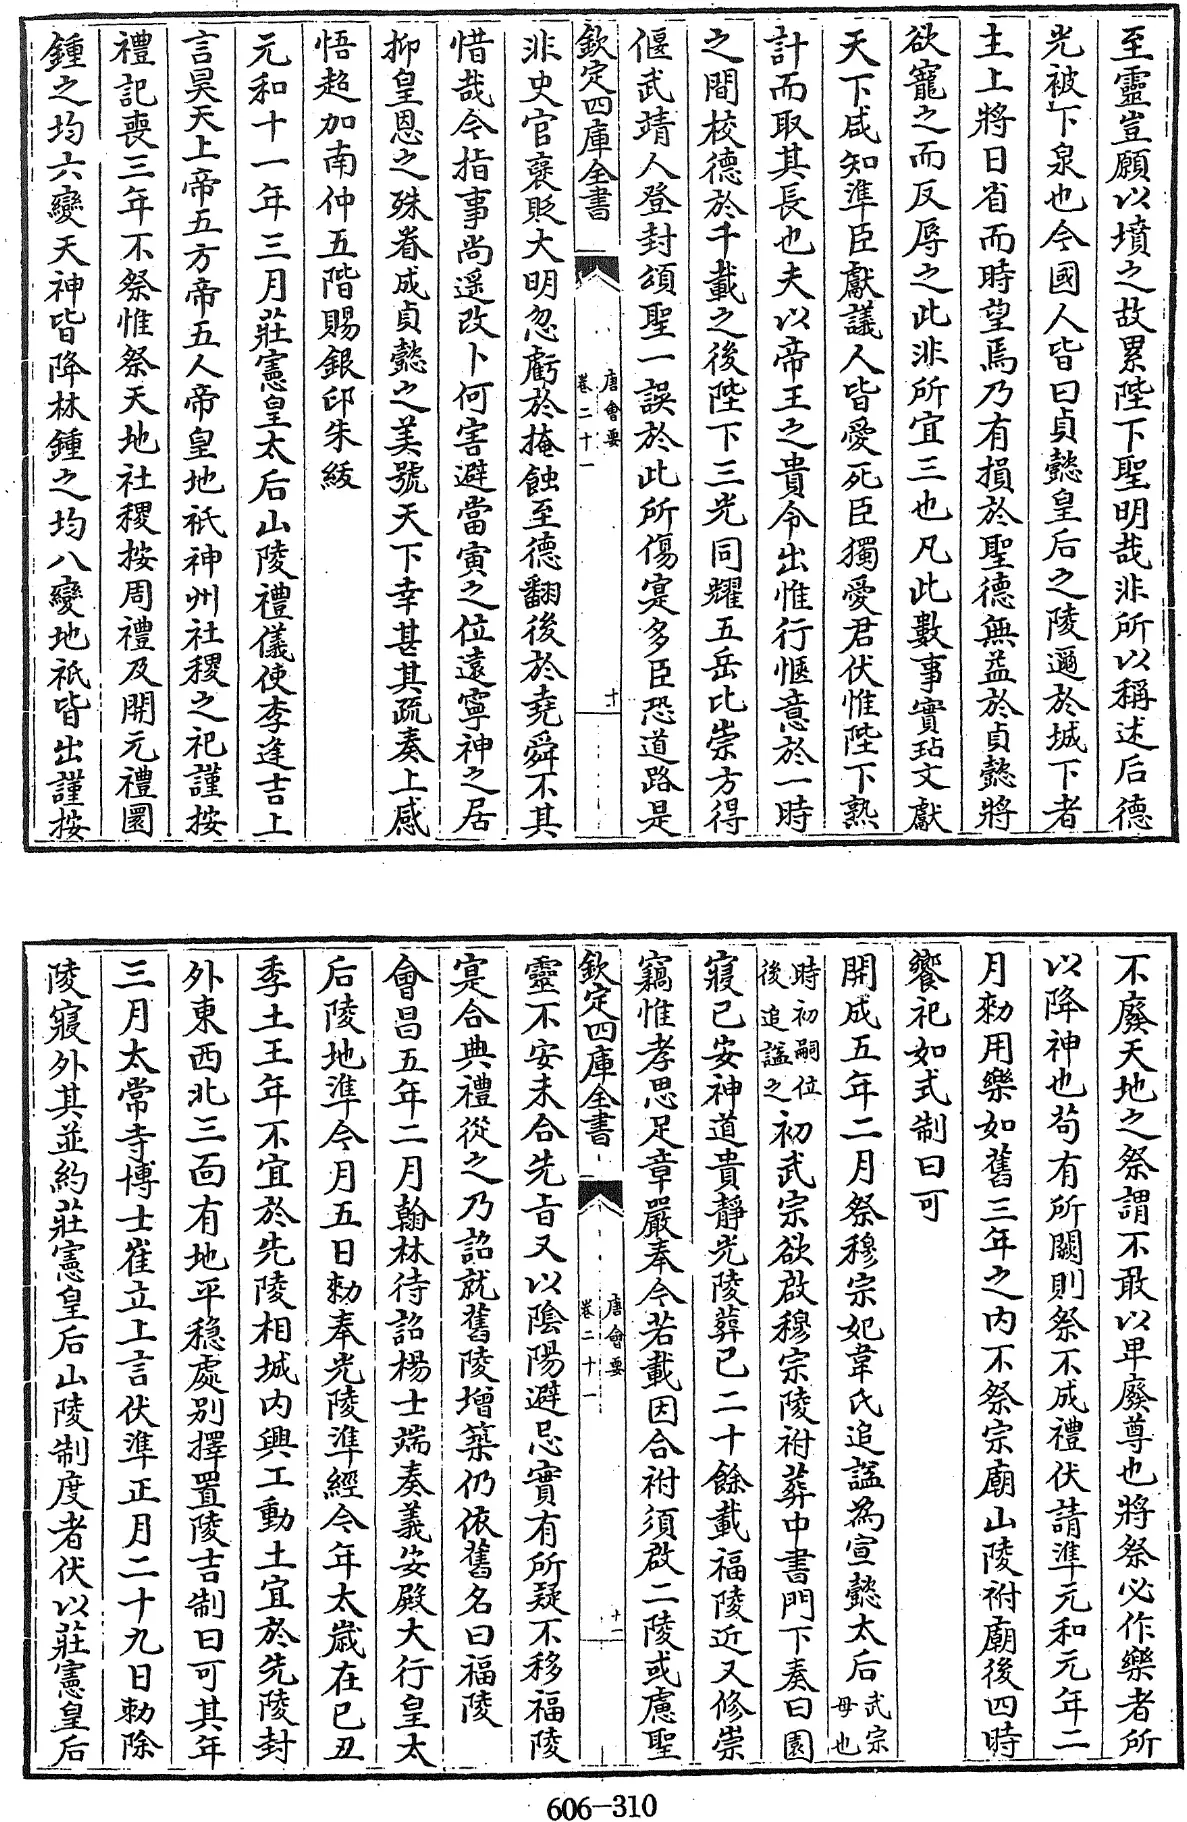 至靈豈願以墳之故累陛下聖明哉非所以稱述后德
光被下泉也今國人皆曰貞懿皇后之陵邇於城下者
主上將日省而時望焉乃有損於聖德無益於貞懿將
欲寵之而反辱之此非所宜三也凡此數事實玷文獻
天下咸知準臣獻議人皆愛死臣獨愛君伏惟陛下熟
計而取其長也夫以帝王之貴令出惟行愜意於一時
之間校德於千載之後陛下三光同耀五岳比崇方得
偃武靖人登封頌聖一誤於此所傷寔多臣恐道路是
欽定四庫全書
唐會要
卷二十一
十
非史官褒貶大明忽虧於掩蝕至德翻後於堯舜不其
惜哉今指事尚遥改卜何害避當寅之位遠寧神之居
抑皇恩之殊眷成貞懿之美號天下幸甚其疏奏上感
悟超加南仲五階賜銀印朱綬
元和十一年三月莊憲皇太后山陵禮儀使李逢吉上
言昊天上帝五方帝五人帝皇地祇神州社稷之祀謹按
禮記喪三年不祭惟祭天地社稷按周禮及開元禮圜
鍾之均六變天神皆降林鍾之均八變地祇皆出謹按
不廢天地之祭謂不敢以卑廢尊也將祭必作樂者所
以降神也苟有所闕則祭不成禮伏請準元和元年二
月勅用樂如舊三年之内不祭宗廟山陵祔廟後四時
饗祀如式制曰可
開成五年二月祭穆宗妃韋氏追諡為宣懿太后武宗母也
時初嗣位後追諡之初武宗欲啟穆宗陵祔葬中書門下奏曰園
寢已安神道貴靜光陵葬已二十餘載福陵近又修崇
竊惟孝思足章嚴奉今若載因合祔須啟二陵或慮聖
欽定四庫全書
唐會要
卷二十一
十一
靈不安未合先㫖又以陰陽避忌實有所疑不移福陵
寔合典禮從之乃詔就舊陵增築仍依舊名曰福陵
會昌五年二月翰林待詔楊士端奏義安殿大行皇太
后陵地準今月五日勅奉光陵準經今年太歲在己丑
季土王年不宜於先陵相城内興工動土宜於先陵封
外東西北三面有地平穏處別擇置陵吉制曰可其年
三月太常寺博士崔立上言伏準正月二十九日勅除
陵寢外其並約莊憲皇后山陵制度者伏以莊憲皇后
606-310